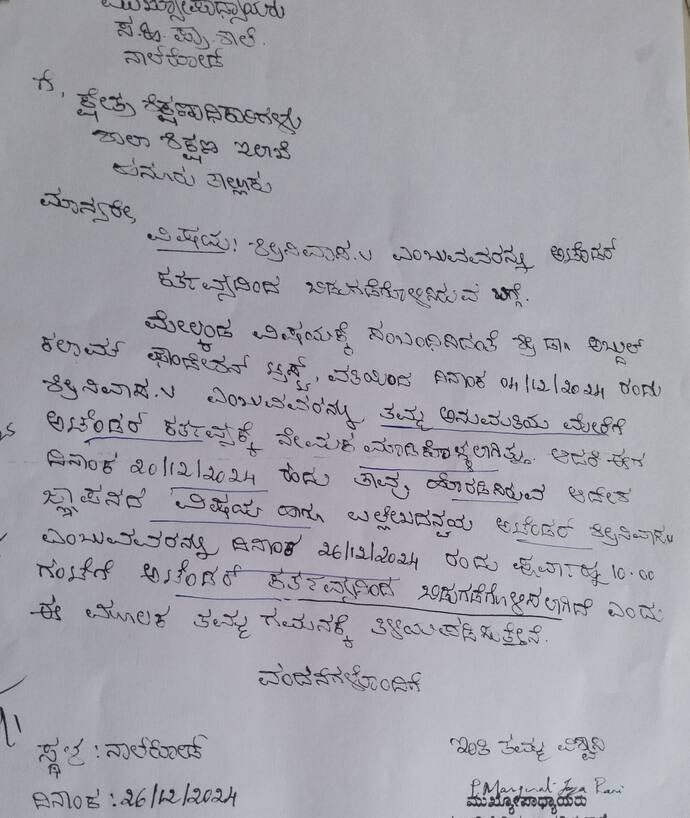 ಮುಖ್ಯೋಪಾಧ್ಯಾಯರು
ಸ.ಹಿ.ಪ್ರಾ.ಶಾಲೆ.
ನಾಲ್‌ರೋಡ್
ಗೆ,
ಕ್ಷೇತ್ರ ಶಿಕ್ಷಣಾಧಿಕಾರಿಗಳು
ಶಾಲಾ ಶಿಕ್ಷಣ ಇಲಾಖೆ
ಹನೂರು ತಾಲ್ಲೂಕು
ಮಾನ್ಯರೇ,
ವಿಷಯ: ಶ್ರೀನಿವಾಸ.ಎ ಎಂಬುವವರನ್ನು ಅಟೆಂಡರ್
ಕರ್ತವ್ಯದಿಂದ ಬಿಡುಗಡೆಗೊಳ್ಳಿಸಿರುವ ಬಗ್ಗೆ.
ಮೇಲ್ಕಂಡ ವಿಷಯಕ್ಕೆ ಸಂಬಂಧಿಸಿದಂತೆ ಶ್ರೀ ಡಾ. ಅಬ್ದುಲ್
ಕಲಾಮ್ ಫೌಂಡೇಶನ್ ಟ್ರಸ್ಟ್, ವತಿಯಿಂದ ದಿನಾಂಕ 04/12/2024 ರಂದು
ಶ್ರೀನಿವಾಸ.ಎ ಎಂಬುವವರನ್ನು ತಮ್ಮ ಅನುಮತಿಯ ಮೇರೆಗೆ
ಅಟೆಂಡರ್ ಕರ್ತವ್ಯಕ್ಕೆ ನೇಮಕ ಮಾಡಿಕೊಳ್ಳಲಾಗಿತ್ತು. ಆದರೆ ಈಗ
ದಿನಾಂಕ 20/12/2024 ರಂದು ತಾವು ಹೊರಡಿಸಿರುವ ಆದೇಶ
ಜ್ಞಾಪನದ ವಿಷಯ ಹಾಗೂ ಅಟೆಂಡರ್ ಶ್ರೀನಿವಾಸ.ಎ
ಎಂಬುವವರನ್ನು ದಿನಾಂಕ 26/12/2024 ರಂದು ಪೂರ್ವಾಹ್ನ 10.00
ಗಂಟೆಗೆ ಅಟೆಂಡರ್ ಕರ್ತವ್ಯದಿಂದ ಬಿಡುಗಡೆಗೊಳ್ಳಿಸಲಾಗಿದೆ ಎಂದು
ಈ ಮೂಲಕ ತಮ್ಮ ಗಮನಕ್ಕೆ ತಿಳಿಯಪಡಿಸುತ್ತೇನೆ.
ವಂದನೆಗಳೊಂದಿಗೆ
ಸ್ಥಳ : ನಾಲ್‌ರೋಡ್
ದಿನಾಂಕ : 26/12/2024
ಇಂತಿ ತಮ್ಮ ವಿಶ್ವಾಸಿ
ಮುಖ್ಯೋಪಾಧ್ಯಾಯರು